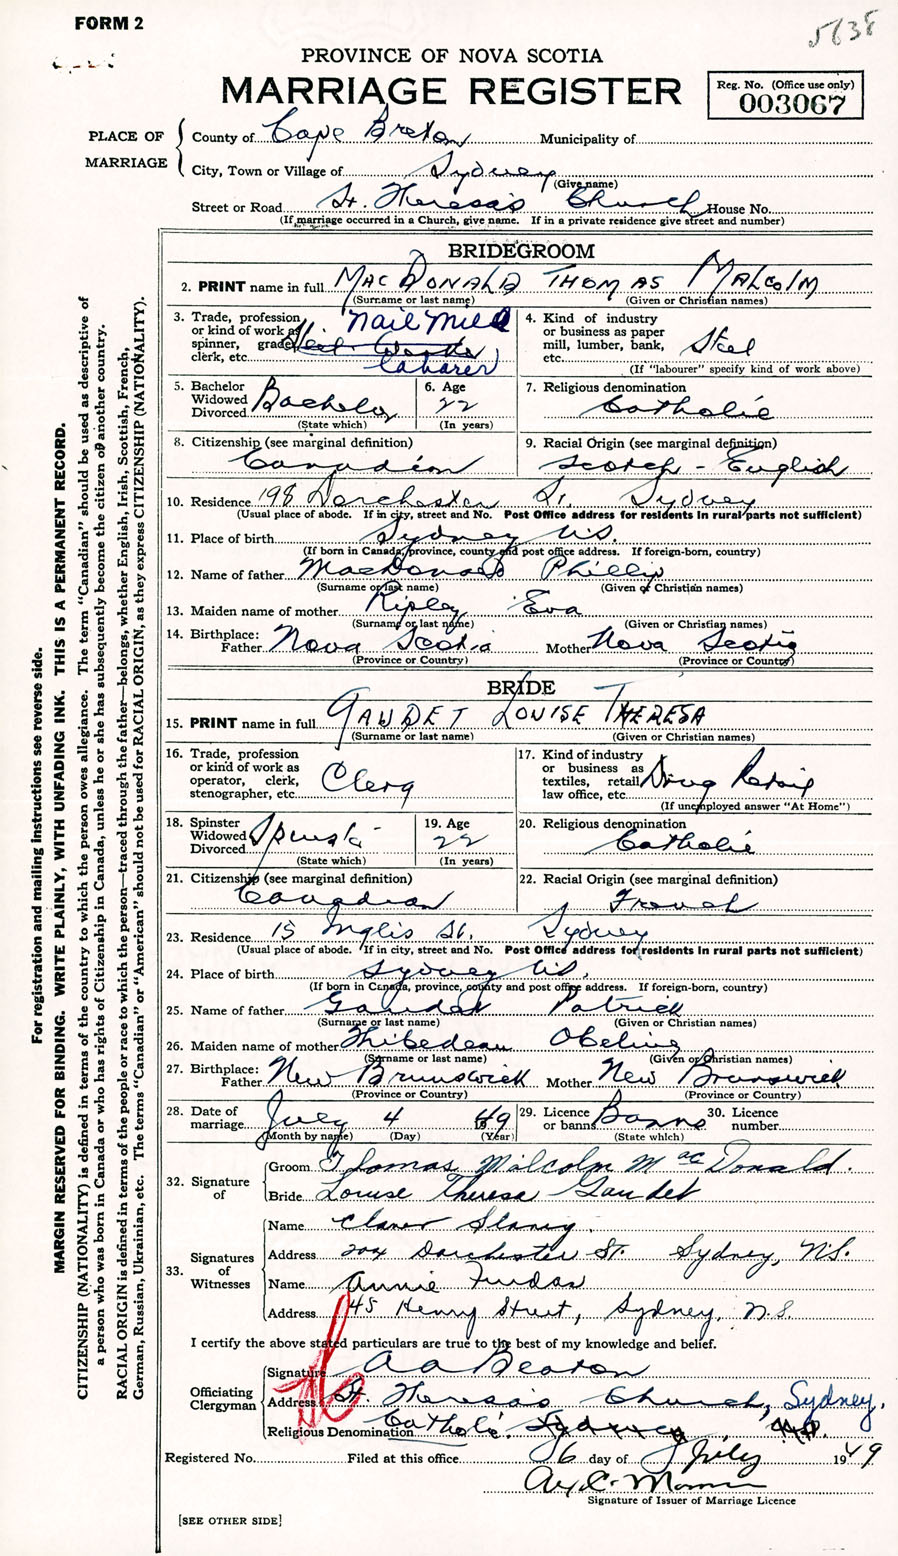 FORM 2
5638
PROVINCE OF NOVA SCOTIA
MARRIAGE REGISTER
Reg. No. (Office use only)
003067
PLACE OF MARRIAGE
County of Cape Breton Municipality of
City, Town or Village of Sydney
(Give name)
Street or Road St. Theresa's Church House No.
(If marriage occurred in a Church, give name. If in a private residence give street and number)
BRIDEGROOM
2. PRINT name in full MacDonald Thomas Malcolm
(Surname or last name) (Given or Christian names)
3. Trade, profession or kind of work as spinner, grader, clerk, etc. Nail Mill Laborer
4. Kind of industry or business as paper mill, lumber, bank, etc. Steel
(If "labourer" specify kind of work above)
5. Bachelor Widowed Divorced Bachelor
(State which)
6. Age 22
(In years)
7. Religious denomination
Catholic
8. Citizenship (see marginal definition)
Canadian
9. Racial Origin (see marginal definition)
Scotch - English
10. Residence 198 Dorchester St. Sydney
(Usual place of abode. If in city, street and No. Post Office address for residents in rural parts not sufficient)
11. Place of birth Sydney N.S.
(If born in Canada, province, county and post office address. If foreign-born, country)
12. Name of father MacDonald Phillip
(Surname or last name) (Given or Christian names)
13. Maiden name of mother Ripley Eva
(Surname or last name) (Given or Christian names)
14. Birthplace: Father Nova Scotia Mother Nova Scotia
(Province or Country) (Province or Country)
BRIDE
15. PRINT name in full GAUDET LOUISE THERESA
(Surname or last name) (Given or Christian names)
16. Trade, profession or kind of work as operator, clerk, stenographer, etc. Clerq
17. Kind of industry or business as textiles, retail law office, etc. Drug Retail
(If unemployed answer "At Home")
18. Spinster Widowed Divorced
(State which)
19. Age 22
(In years)
20. Religious denomination
Catholic
21. Citizenship (see marginal definition)
Canadian
22. Racial Origin (see marginal definition)
French
23. Residence 15 Inglis St. Sydney
(Usual place of abode. If in city, street and No. Post Office address for residents in rural parts not sufficient)
24. Place of birth Sydney N.S.
(If born in Canada, province, county and post office address. If foreign-born, country)
25. Name of father Gaudet Patrick
(Surname or last name) (Given or Christian names)
26. Maiden name of mother Thibedeau Obeline
(Surname or last name) (Given or Christian names)
27. Birthplace: Father New Brunswick Mother New Brunswick
(Province or Country) (Province or Country)
28. Date of marriage July 4 49
(Month by name) (Day) (Year)
29. Licence or banns Banns
(State which)
30. Licence number
32. Signature of
Groom Thomas Malcolm MacDonald.
Bride Louise Theresa Gaudet
33. Signatures of Witnesses
Name
Address 204 Dorchester St. Sydney, N.S.
Name Annie
Address 45 Henry Street, Sydney, N.S.
I certify the above stated particulars are true to the best of my knowledge and belief.
Officiating Clergyman
Signature A A Beaton
Address St. Theresa's Church, Sydney.
Religious Denomination Catholic.
Registered No. Filed at this office 6 day of July 1949
Signature of Issuer of Marriage Licence
[SEE OTHER SIDE]
For registration and mailing instructions see reverse side.
MARGIN RESERVED FOR BINDING. WRITE PLAINLY, WITH UNFADING INK. THIS IS A PERMANENT RECORD.
CITIZENSHIP (NATIONALITY) is defined in terms of the country to which the person owes allegiance. The term "Canadian" should be used as descriptive of
a person who was born in Canada or who has rights of Citizenship in Canada, unless he or she has subsequently become the citizen of another country.
RACIAL ORIGIN is defined in terms of the people or race to which the person—traced through the father—belongs, whether English, Irish, Scottish, French,
German, Russian, Ukrainian, etc. The terms "Canadian" or "American" should not be used for RACIAL ORIGIN, as they express CITIZENSHIP (NATIONALITY).